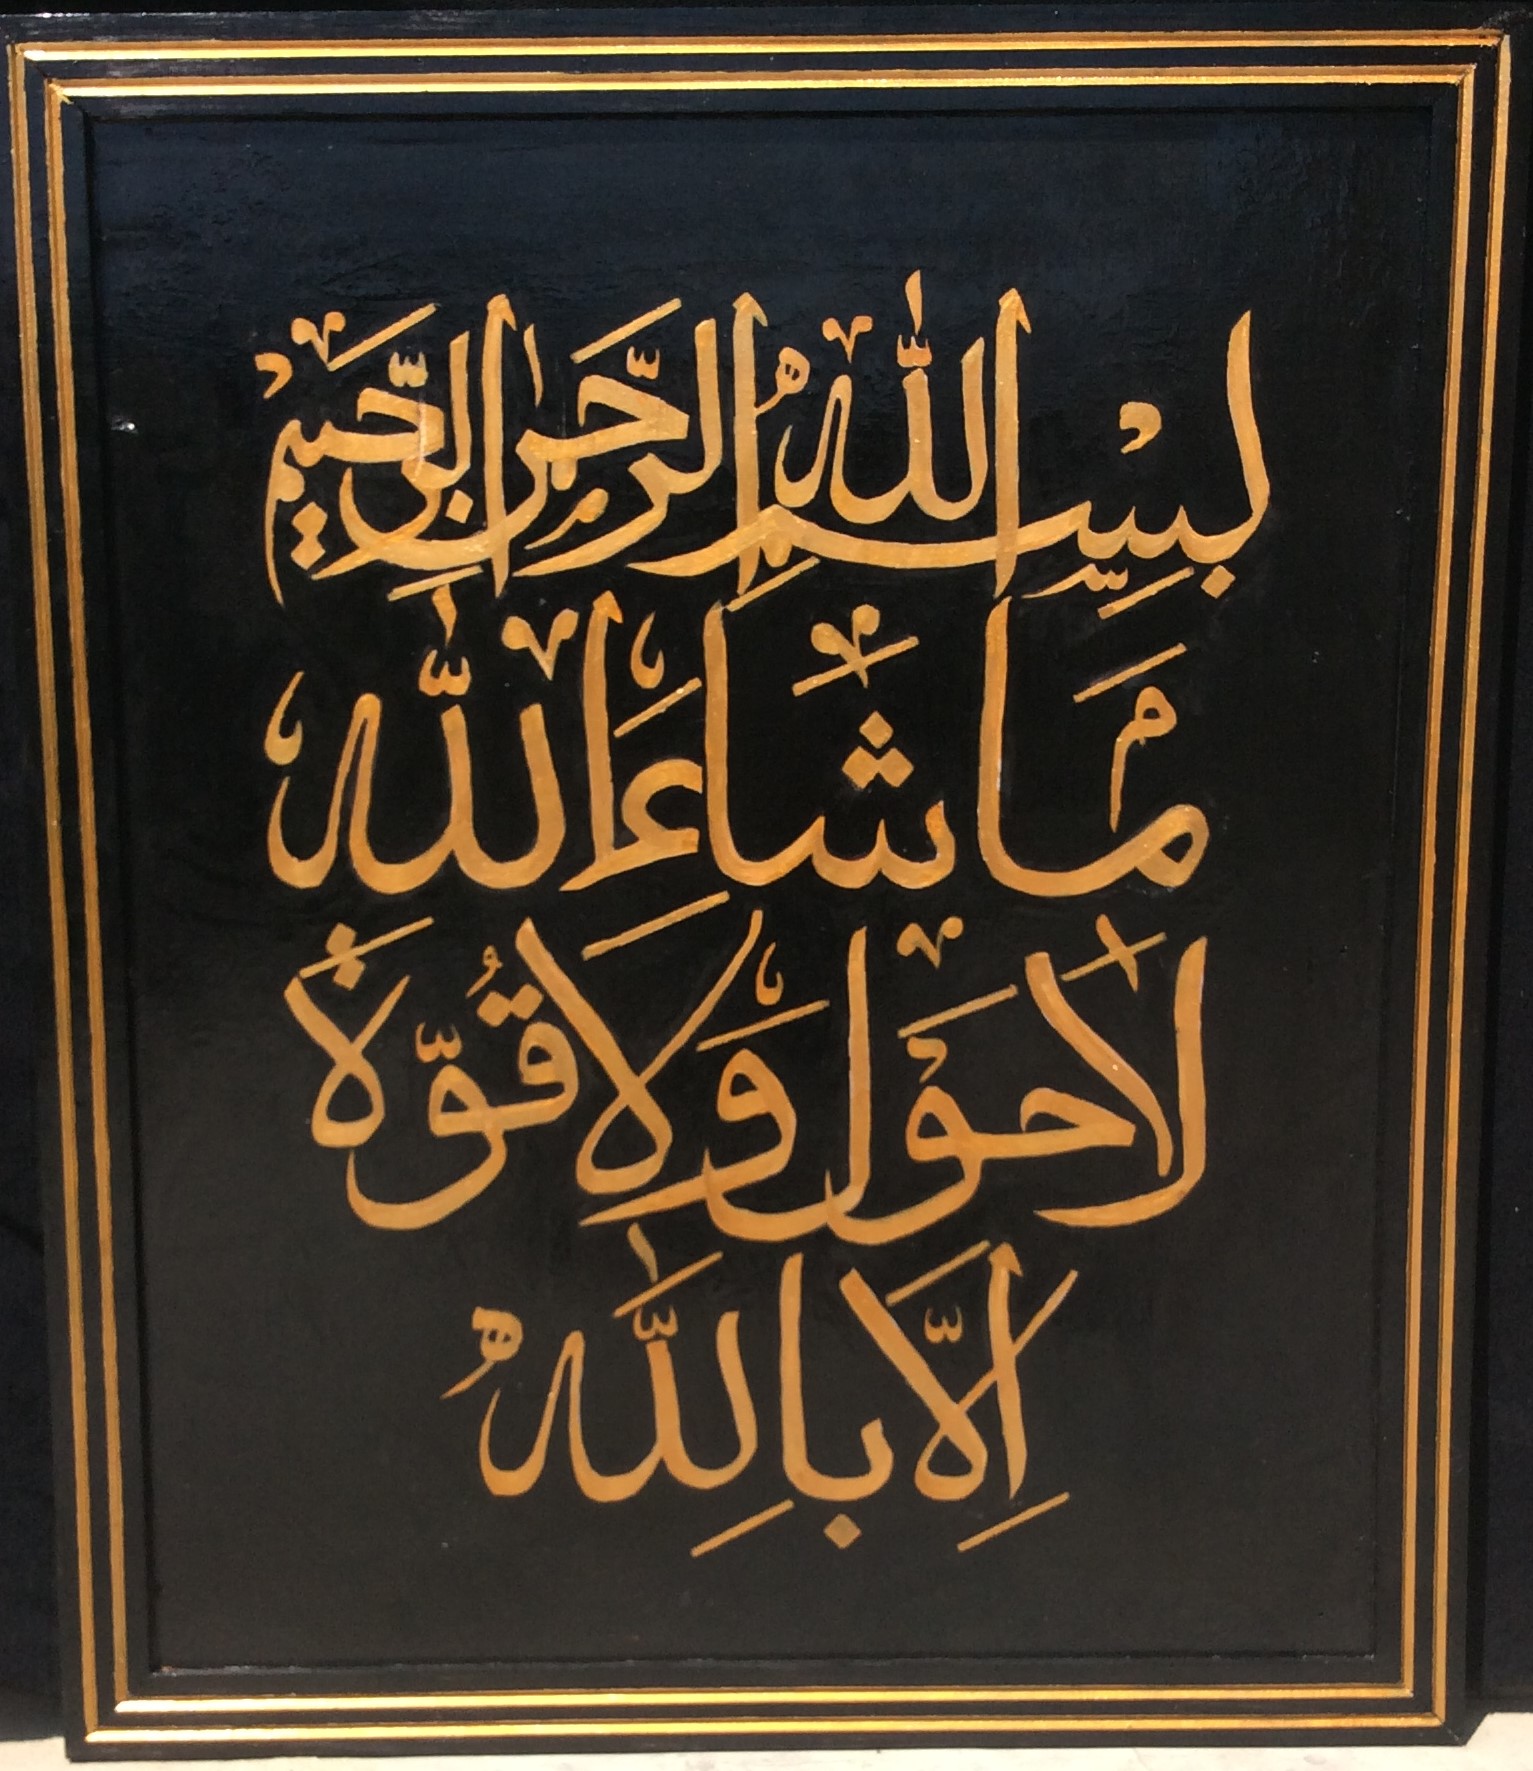 بسم الله الرحمن الرحيم
ما شاء الله
لا حول ولا قوة
الا بالله